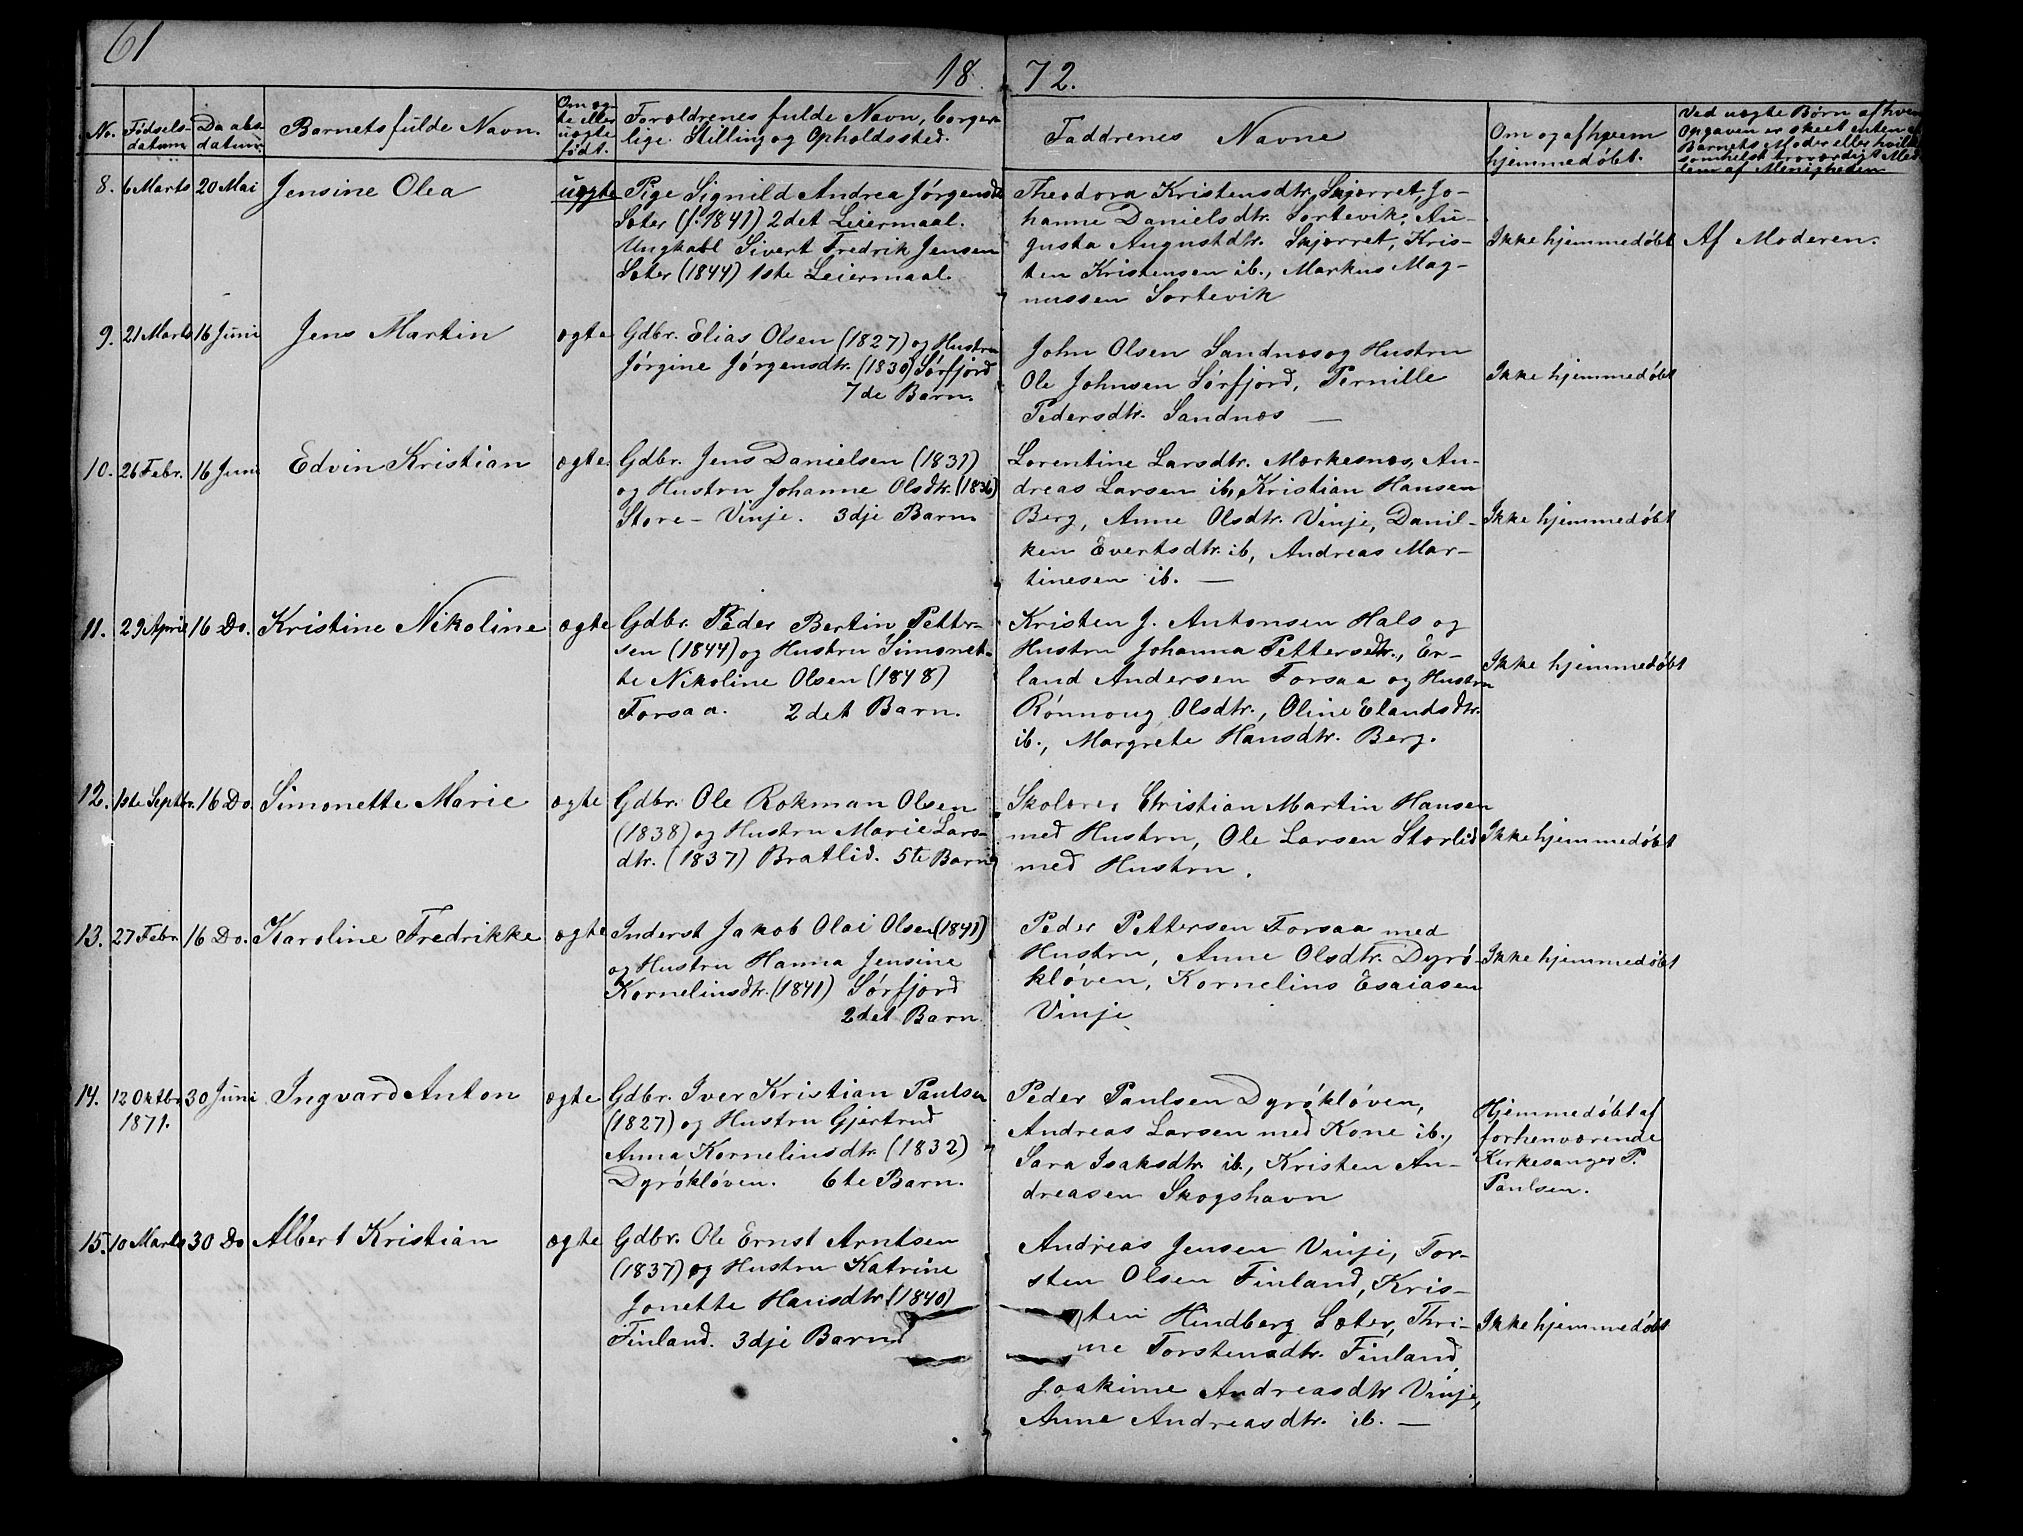 61
18 72.
No.
Fødsels-
datum
Daabs
datum
Barnets fulde Navn.
Om æg-
te eller
uægte
født.
Forældrenes fulde Navn, borger-
lige Stilling og Opholdssted.
Faddrenes Navne
Om og af hvem
hjemmedøbt.
Ved uægte Børn af hvem
Opgaven er skeet enten af
Barnets Moder eller hvilket
somhelst troværdigt Med
lem af Menigheden
8. 6 Marts 20 Mai Jensine Olea uægte
Pige Signild Andrea Jørgensdtr
Sæter (f. 1841) 2det Leiermaal.
Ungkarl Sivert Fredrik Jensen
Sæter (1844) 1ste Leiermaal.
Theodora Kristensdtr. Skjærret, Jo-
hanne Danielsdtr. Sortevik, Au-
gusta Augustdtr. Skjærret, Kris-
ten Kristensen ib., Markus Mag-
nussen Sortevik
Ikke hjemmedøbt
Af Moderen.
9. 21 Marts 16 Juni Jens Martin ægte
Gdbr. Elias Olsen (1827) og Hustru
Jørgine Jørgensdtr. (1830) Sørfjord
7de Barn.
John Olsen Sandnæs og Hustru
Ole Johnsen Sørfjord, Pernille
Pedersdtr. Sandnæs —
Ikke hjemmedøbt
10. 26 Febr. 16 Juni Edvin Kristian ægte
Gdbr. Jens Danielsen (1831)
og Hustru Johanne Olsdtr. (1836)
Store-Vinje. 3dje Barn
Lorentine Larsdtr. Mærkesnæs, An-
dreas Larsen ib., Kristian Hansen
Berg, Anne Olsdtr. Vinje, Danil-
ken Evertsdtr. ib, Andreas Mar-
tinesen ib. —
Ikke hjemmedøbt
11. 29 April 16 Do. Kristine Nikoline ægte
Gdbr. Peder Bertin Petter-
sen (1844) og Hustru Simonet-
te Nikoline Olsen (1848)
Forsaa. 2det Barn.
Kristen J. Antonsen Hals og
Hustru Johanna Pettersdtr., Er-
land Andersen Forsaa og Hustru
Rønnoug Olsdtr., Oline Elandsdtr.
ib., Margrete Hansdtr. Berg.
Ikke hjemmedøbt
12. 1ste Septbr. 16 Do. Simonette Marie ægte
Gdbr. Ole Rokman Olsen
(1838) og Hustru Marie Lars-
dtr. (1837) Bratlid. 5te Barn
Skolærer Christian Martin Hansen
med Hustru, Ole Larsen Storlid
med Hustru.
Ikke hjemmedøbt
13. 27 Febr. 16 Do. Karoline Fredrikke ægte
Inderst Jakob Olai Olsen (1841)
og Hustru Hanna Jensine
Kornelinsdtr. (1841) Sørfjord
2det Barn
Peder Pettersen Forsaa med
Hustru, Anne Olsdtr. Dyrø-
kløven, Kornelius Esaiasen
Vinje
Ikke hjemmedøbt
14. 12 Oktbr. 30 Juni Ingvard Anton ægte
1871.
Gdbr. Iver Kristian Paulsen
(1827) og Hustru Gjertrud
Anna Kornelinsdtr. (1832)
Dyrøkløven. 6te Barn.
Peder Paulsen Dyrøkløven,
Andreas Larsen med Kone ib.,
Sara Isaksdtr. ib., Kristen An-
dreasen Skogshavn
Hjemmedøbt af
forhenværende
Kirkesanger P.
Paulsen.
15. 10 Marts 30 Do Albert Kristian ægte
Gdbr. Ole Ernst Arntsen
(1837) og Hustru Katrine
Jonette Hansdtr. (1840)
Finland. 3dje Barn
Andreas Jensen Vinje, Tor-
sten Olsen Finland, Kris-
ten Hindberg Sæter, Thri-
ne Torstensdtr. Finland,
Joakime Andreasdtr. Vinje,
Anne Andreasdtr. ib. —
Ikke hjemmedøbt